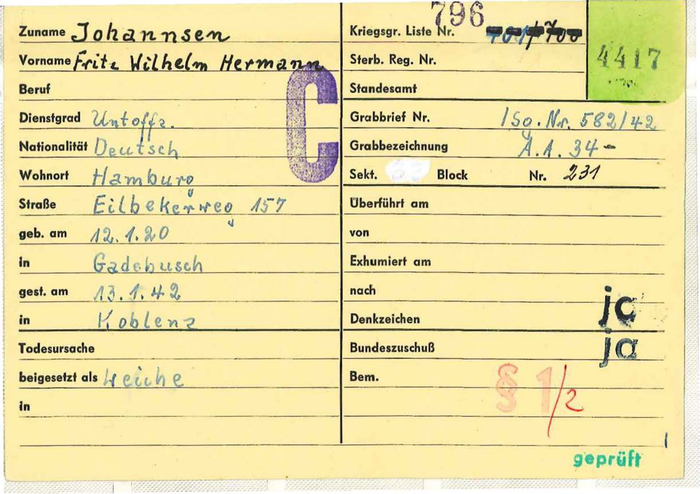 Zuname Johannsen
Vorname Fritz Wilhelm Hermann
Beruf
Dienstgrad Untoffz.
Nationalität Deutsch
Wohnort Hamburg
Straße Eilbekerweg 157
geb. am 12.1.20
in Gadebusch
gest. am 13.1.42
in Koblenz
Todesursache
beigesetzt als Leiche
in
C
796
Kriegsgr. Liste Nr.
4417
Sterb. Reg. Nr.
Standesamt
Grabbrief Nr. Iso. Nr. 582/42
Grabbezeichnung A.1. 34-
Sekt. Block Nr. 231
Überführt am
von
Exhumiert am
nach
Denkzeichen ja
Bundeszuschuß ja
Bem. § 1/2
geprüft